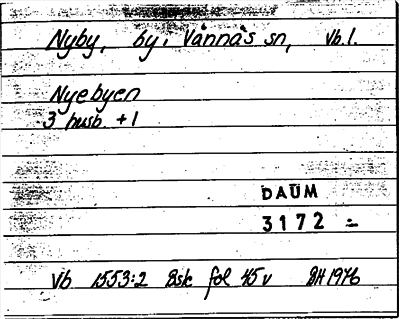 Nyby, by i Vännäs sn, Vb.l.
Nyebyen
3 husb. +1
DAUM
3172 -
Vb 1553:2 Bsk fol 45v BH 1976